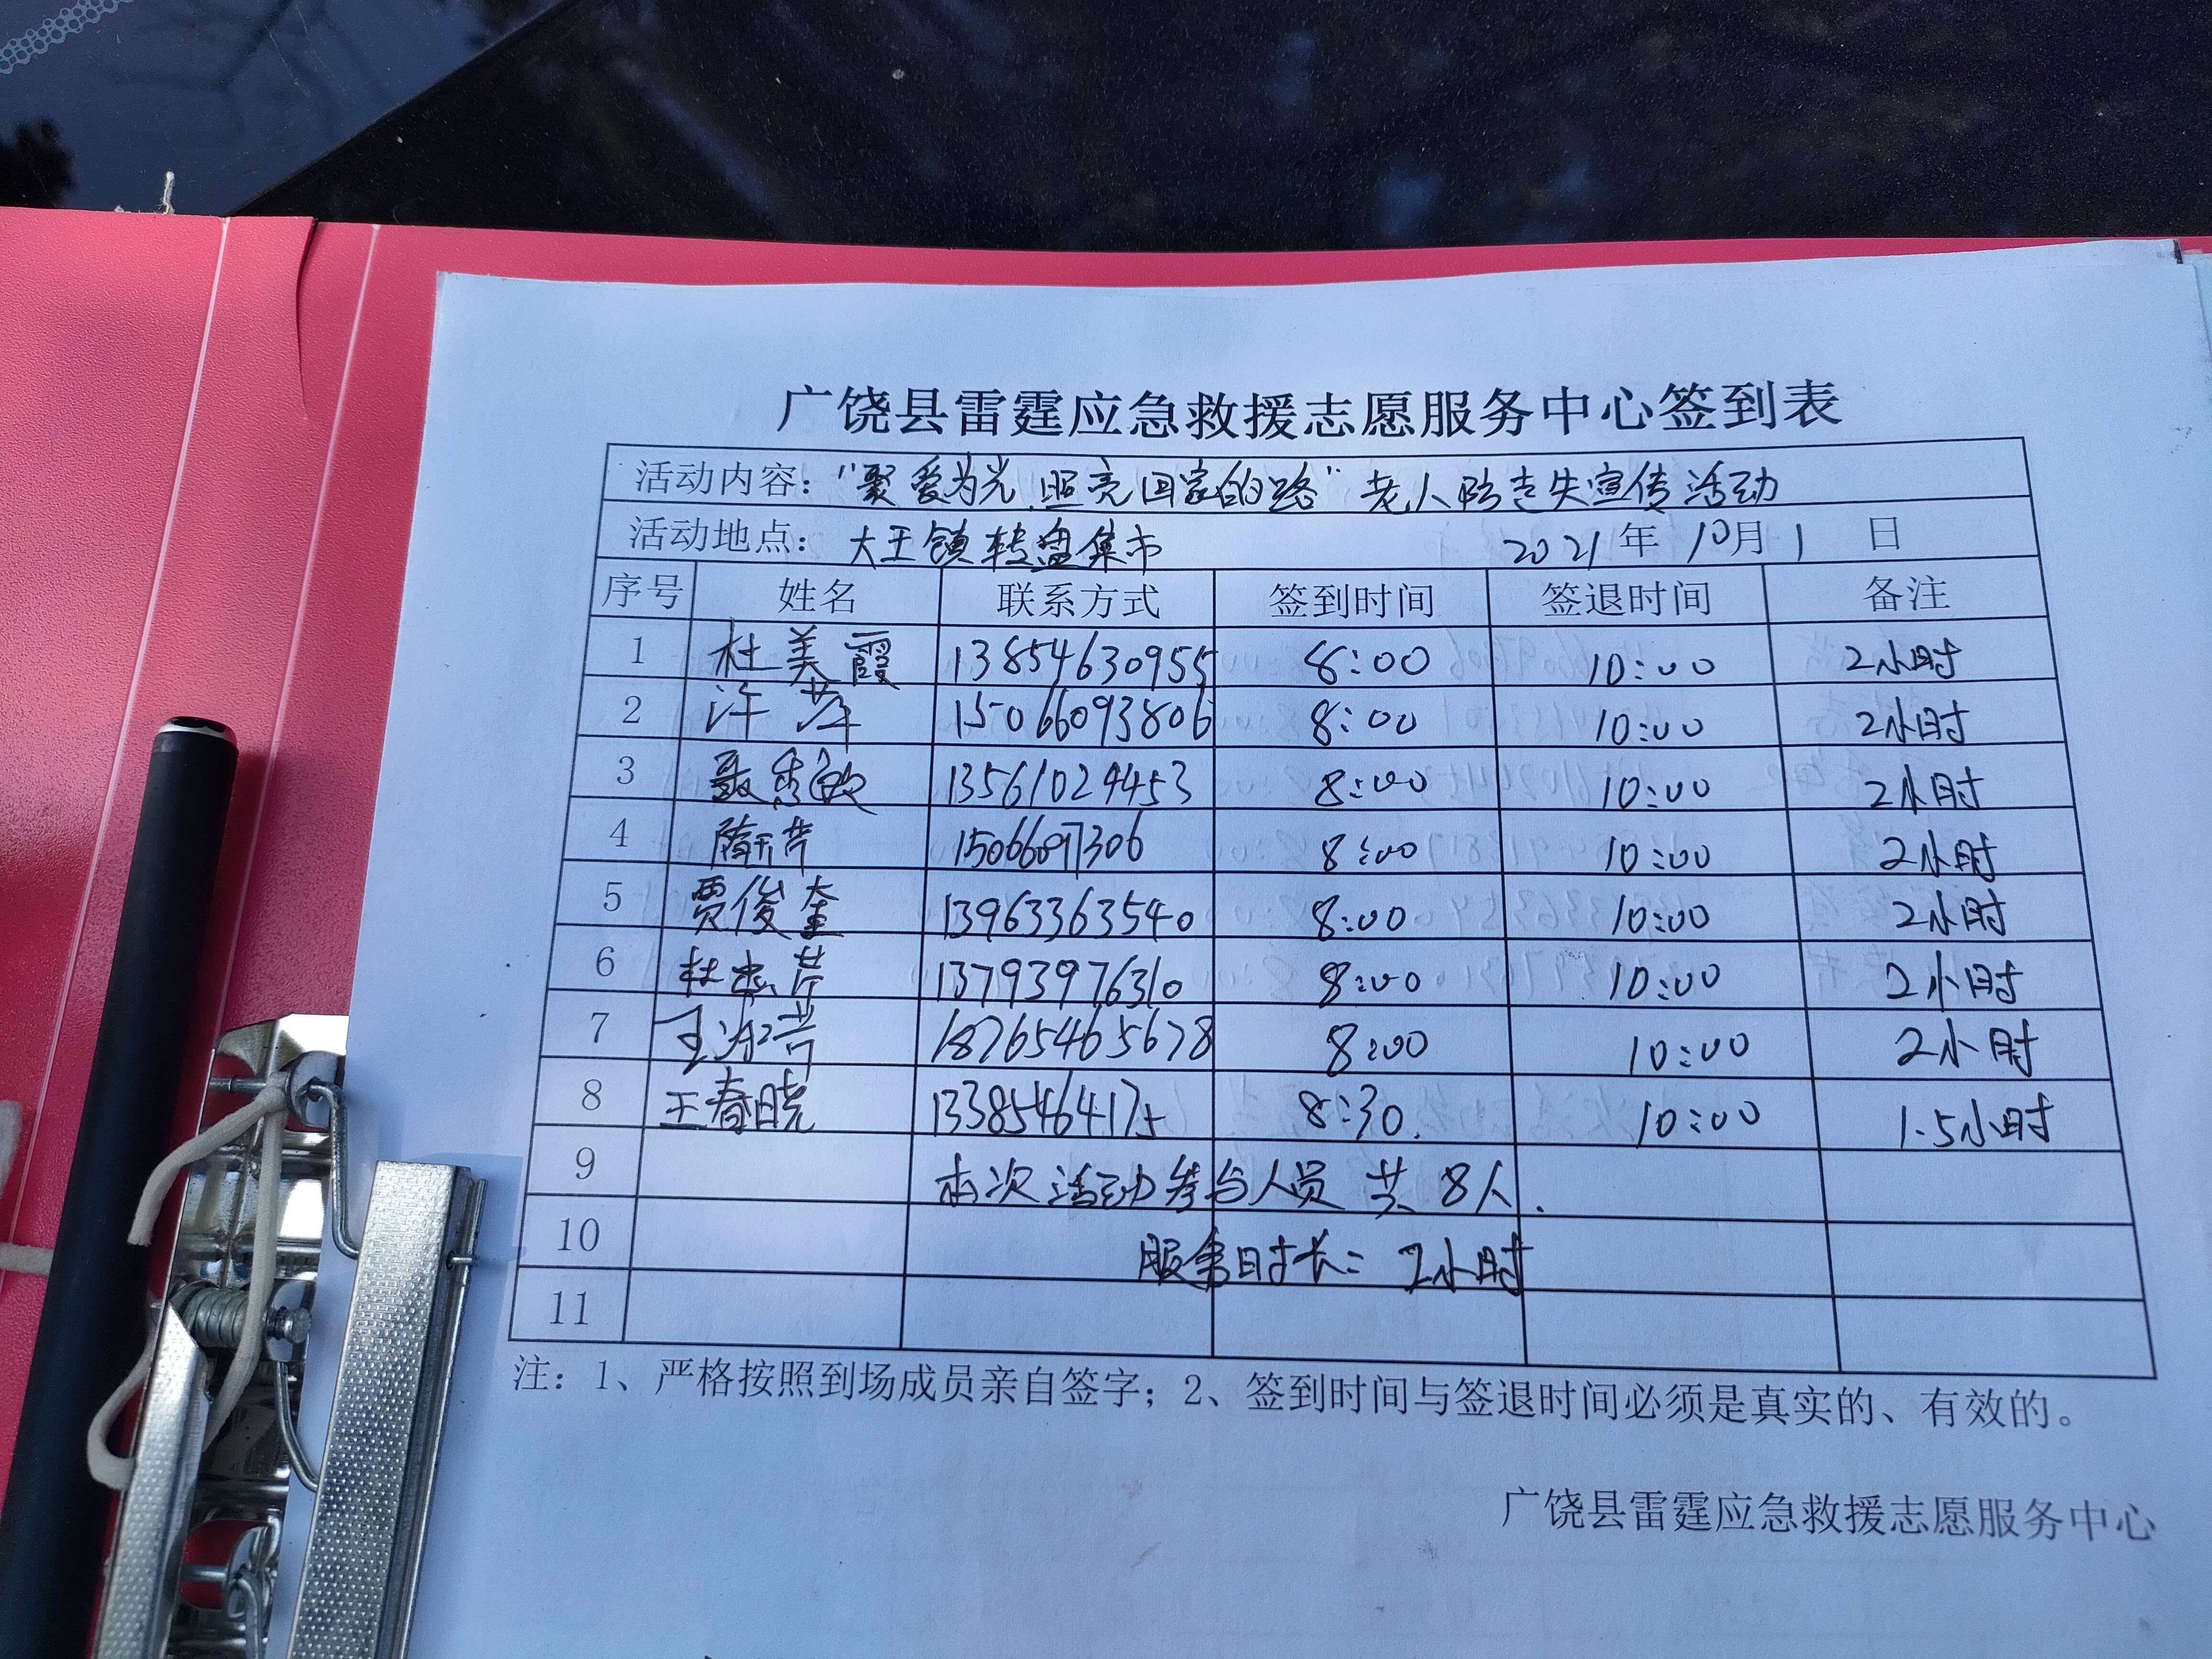 广饶县雷霆应急救援志愿服务中心签到表
活动内容：“聚爱为光，照亮回家的路”老人防走失宣传活动
活动地点：大王镇转盘集市 2021年10月1日
序号 姓名 联系方式 签到时间 签退时间 备注
1 杜美霞 13854630955 8:00 10:00 2小时
2 许芹 15066093806 8:00 10:00 2小时
3 13561024453 8:00 10:00 2小时
4 15066097306 8:00 10:00 2小时
5 贾俊奎 13963363540 8:00 10:00 2小时
6 13793976310 8:00 10:00 2小时
7 18765465678 8:00 10:00 2小时
8 王春晓 13385464175 8:30. 10:00 1.5小时
9 本次活动参与人员共8人.
10 服务时长: 2小时
11
注：1、严格按照到场成员亲自签字；2、签到时间与签退时间必须是真实的、有效的。
广饶县雷霆应急救援志愿服务中心